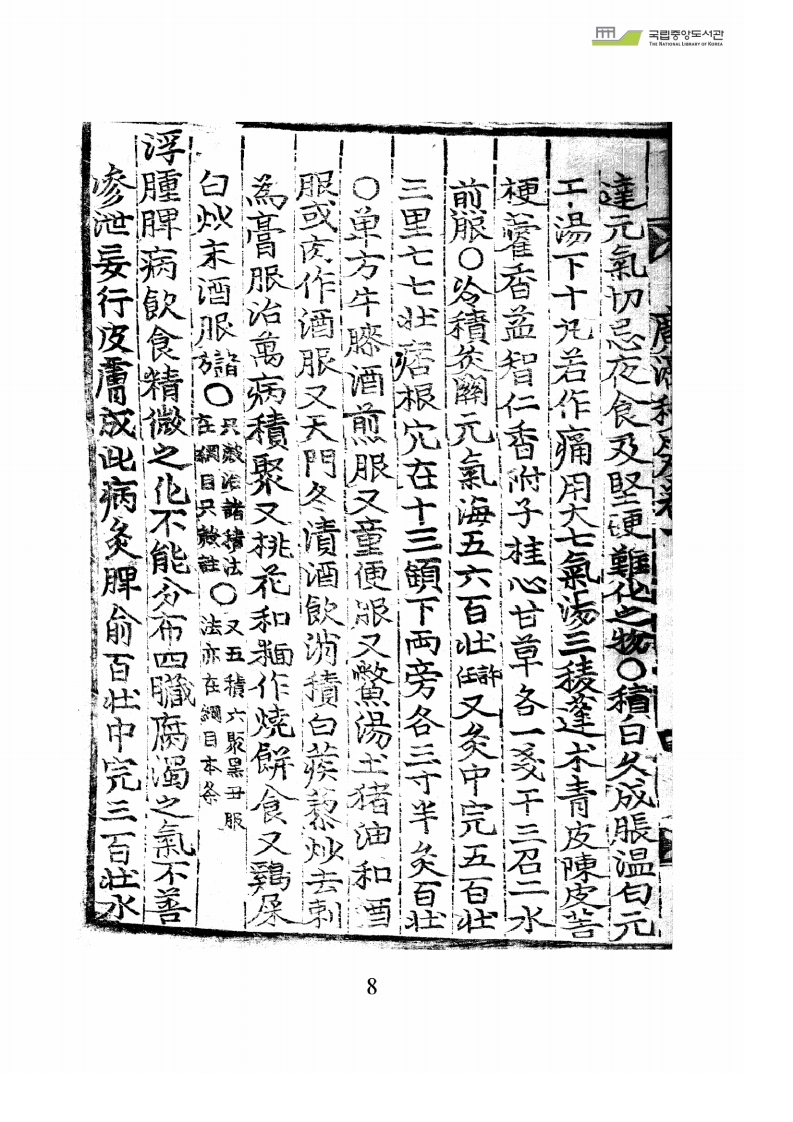 국립중앙도서관
THE NATIONAL LIBRARY OF KOREA
達元氣切忌夜食及堅硬難化之物○積白久成脹溫白元
工湯下十丸若作痛用大七氣湯三稜蓬朮靑皮陳皮苦
梗藿香益智仁香附子桂心甘草各一戔干三召二水
煎服○冷積灸關元氣海五六百壯許又灸中完五百壯
三里七七壯痞根穴在十三顀下兩旁各三寸半灸百壯
○单方牛膝酒煎服又童便服又鱉湯土猪油和酒
服或肉作酒服又天門冬漬酒飮消積白蒺藜炒去刺
為膏服治萬病積聚又桃花和麵作燒餠食又鷄屎
白炒末酒服諸方○只散準諸積法在綱目只散註○又五積六聚黑丑服法亦在綱目本条
浮腫脾病飮食精微之化不能分布四臟腐濁之氣不善
滲泄妄行皮膚成此病灸脾俞百壯中完三百壯水
8